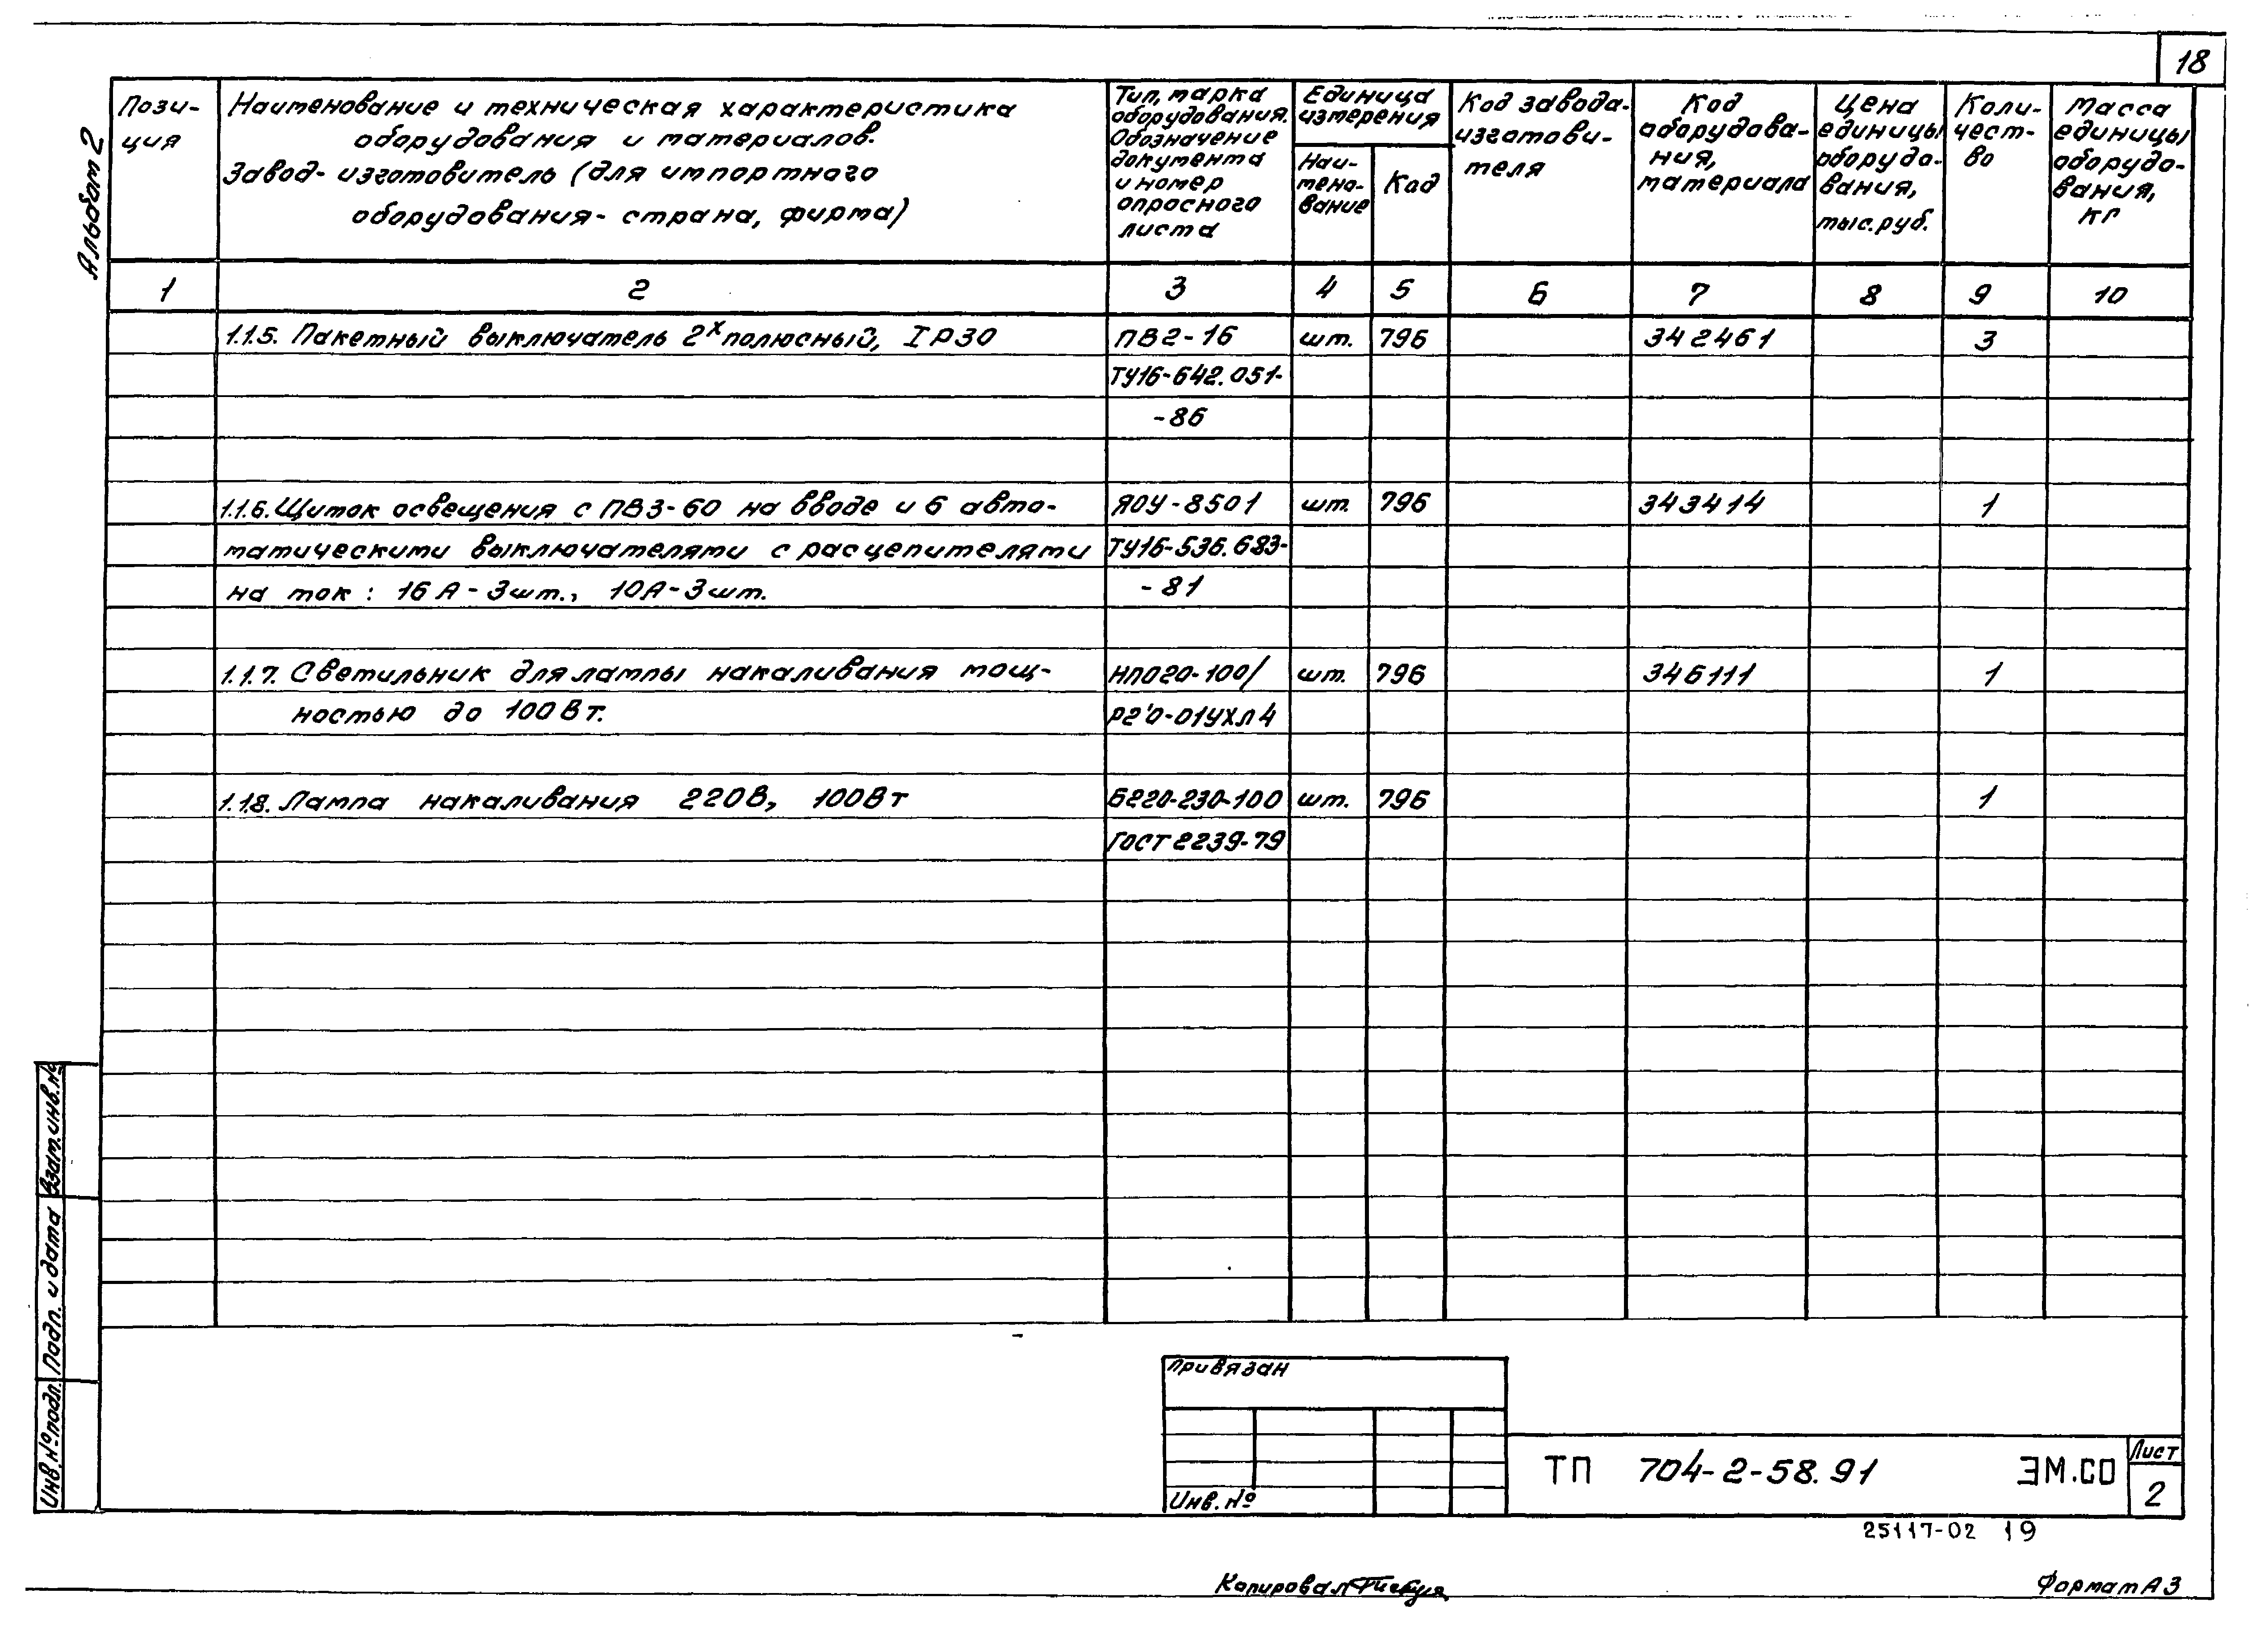 18
Альбом 2
Пози-
ция
Наименование и техническая характеристика
оборудования и материалов.
Завод-изготовитель (для импортного
оборудования- страна, фирма)
Тип, марка
оборудования.
Обозначение
документа
и номер
опросного
листа
Единица
измерения
Наи-
мено-
вание
Код
Код завода-
изготови-
теля
Код
оборудова-
ния,
материала
Цена
единицы
оборудо-
вания,
тыс.руб.
Коли-
чест-
во
Масса
единицы
оборудо-
вания,
кг
1 2 3 4 5 6 7 8 9 10
1.1.5. Пакетный выключатель 2х полюсный, IP30 ПВ2-16 шт. 796 342461 3
ТУ16-642.051-
-86
1.1.6. Щиток освещения с ПВ3-60 на вводе и 6 авто- ЯОУ-8501 шт. 796 343414 1
матическими выключателями с расцепителями ТУ16-536.683-
на ток: 16А-3шт., 10А-3шт. -81
1.1.7. Светильник для лампы накаливания мощ- НПО20-100/ шт. 796 346111 1
ностью до 100Вт. Р2'0-01УХЛ4
1.1.8. Лампа накаливания 220В, 100Вт Б220-230-100 шт. 796 1
ГОСТ 2239-79
Взам.инв.№
Подп. и дата
Инв.№подл.
Привязан
Инв.№
ТП 704-2-58.91 ЭМ.СО
Лист
2
25117-02 19
Копировал
Формат А3